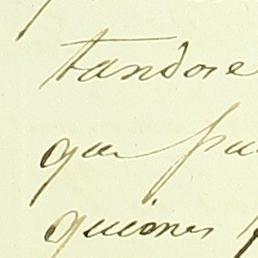 tandose
que pu
quienes